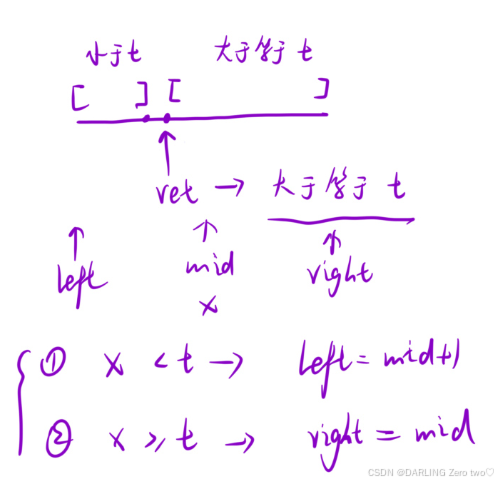 小于t 大于等于 t
[ ] [ ]
ret → 大于等于 t
left mid right
x
① x < t → left = mid+1
② x ≥ t → right = mid
CSDN @DARLING Zero two♡